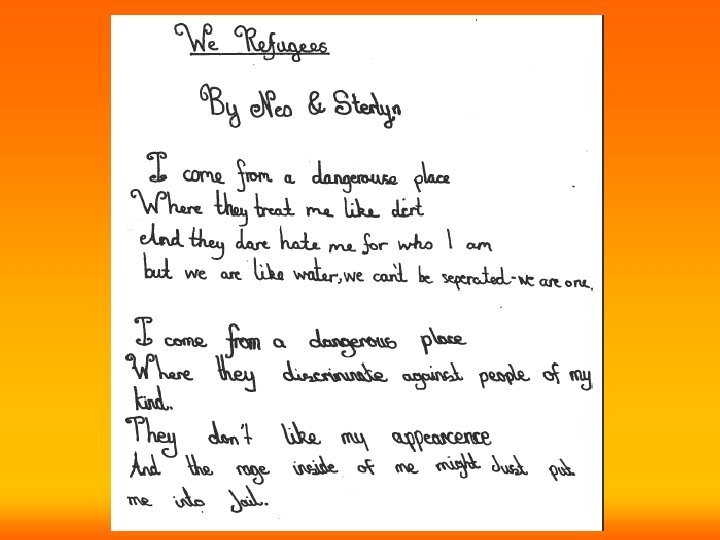 We Refugees
By Neo & Sterlyn
I come from a dangerouse place
Where they treat me like dirt
And they dare hate me for who I am
but we are like water, we can't be seperated - we are one.
I come from a dangerous place
Where they discriminate against people of my
kind.
They don't like my appearcence
And the rage inside of me might Just put
me into Jail.